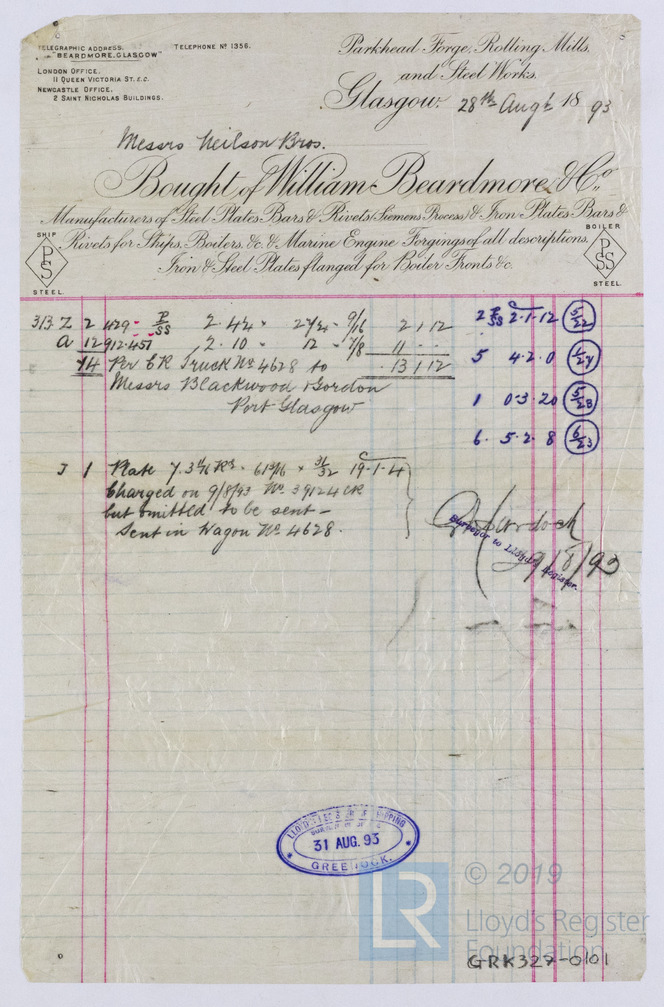 TELEGRAPHIC ADDRESS.
"BEARDMORE, GLASGOW"
TELEPHONE Nº 1356.
LONDON OFFICE,
11 QUEEN VICTORIA ST. E.C.
NEWCASTLE OFFICE,
2 SAINT NICHOLAS BUILDINGS.
Parkhead Forge, Rolling Mills,
and Steel Works.
Glasgow. 28th Augt 18 93
Messrs Neilson Bros.
Bought of William Beardmore & Co.,
Manufacturers of Steel Plates Bars & Rivets (Siemens Process) & Iron Plates Bars &
Rivets for Ships, Boilers, &c. & Marine Engine Forgings of all descriptions.
Iron & Steel Plates flanged for Boiler Fronts &c.
SHIP
PS
STEEL.
BOILER
PSS
STEEL.
313 Z 2 429 P/SS 2.4½ 2 7/2 9/16 2 1 12
a 12 912.457 2.10 12 7/8 11
14 Per CR Truck No 4628 to 13 1 12
Messrs Blackwood & Gordon
Port Glasgow
2 P/SS 2.1.12
5 4.2.0
1 0.3.20
6. 5.2.8
J 1 Plate 7.3 61 31/32 19.1.4
Charged on 9/8/93 No 39124 CR
but omitted to be sent -
Sent in Wagon No 4628.
Surveyor to Lloyd's Register.
/8/93
LLOYD'S REGISTER OF SHIPPING
31 AUG. 93
GREENOCK.
LR
© 2019
Lloyd's Register
Foundation
GRK327-0101